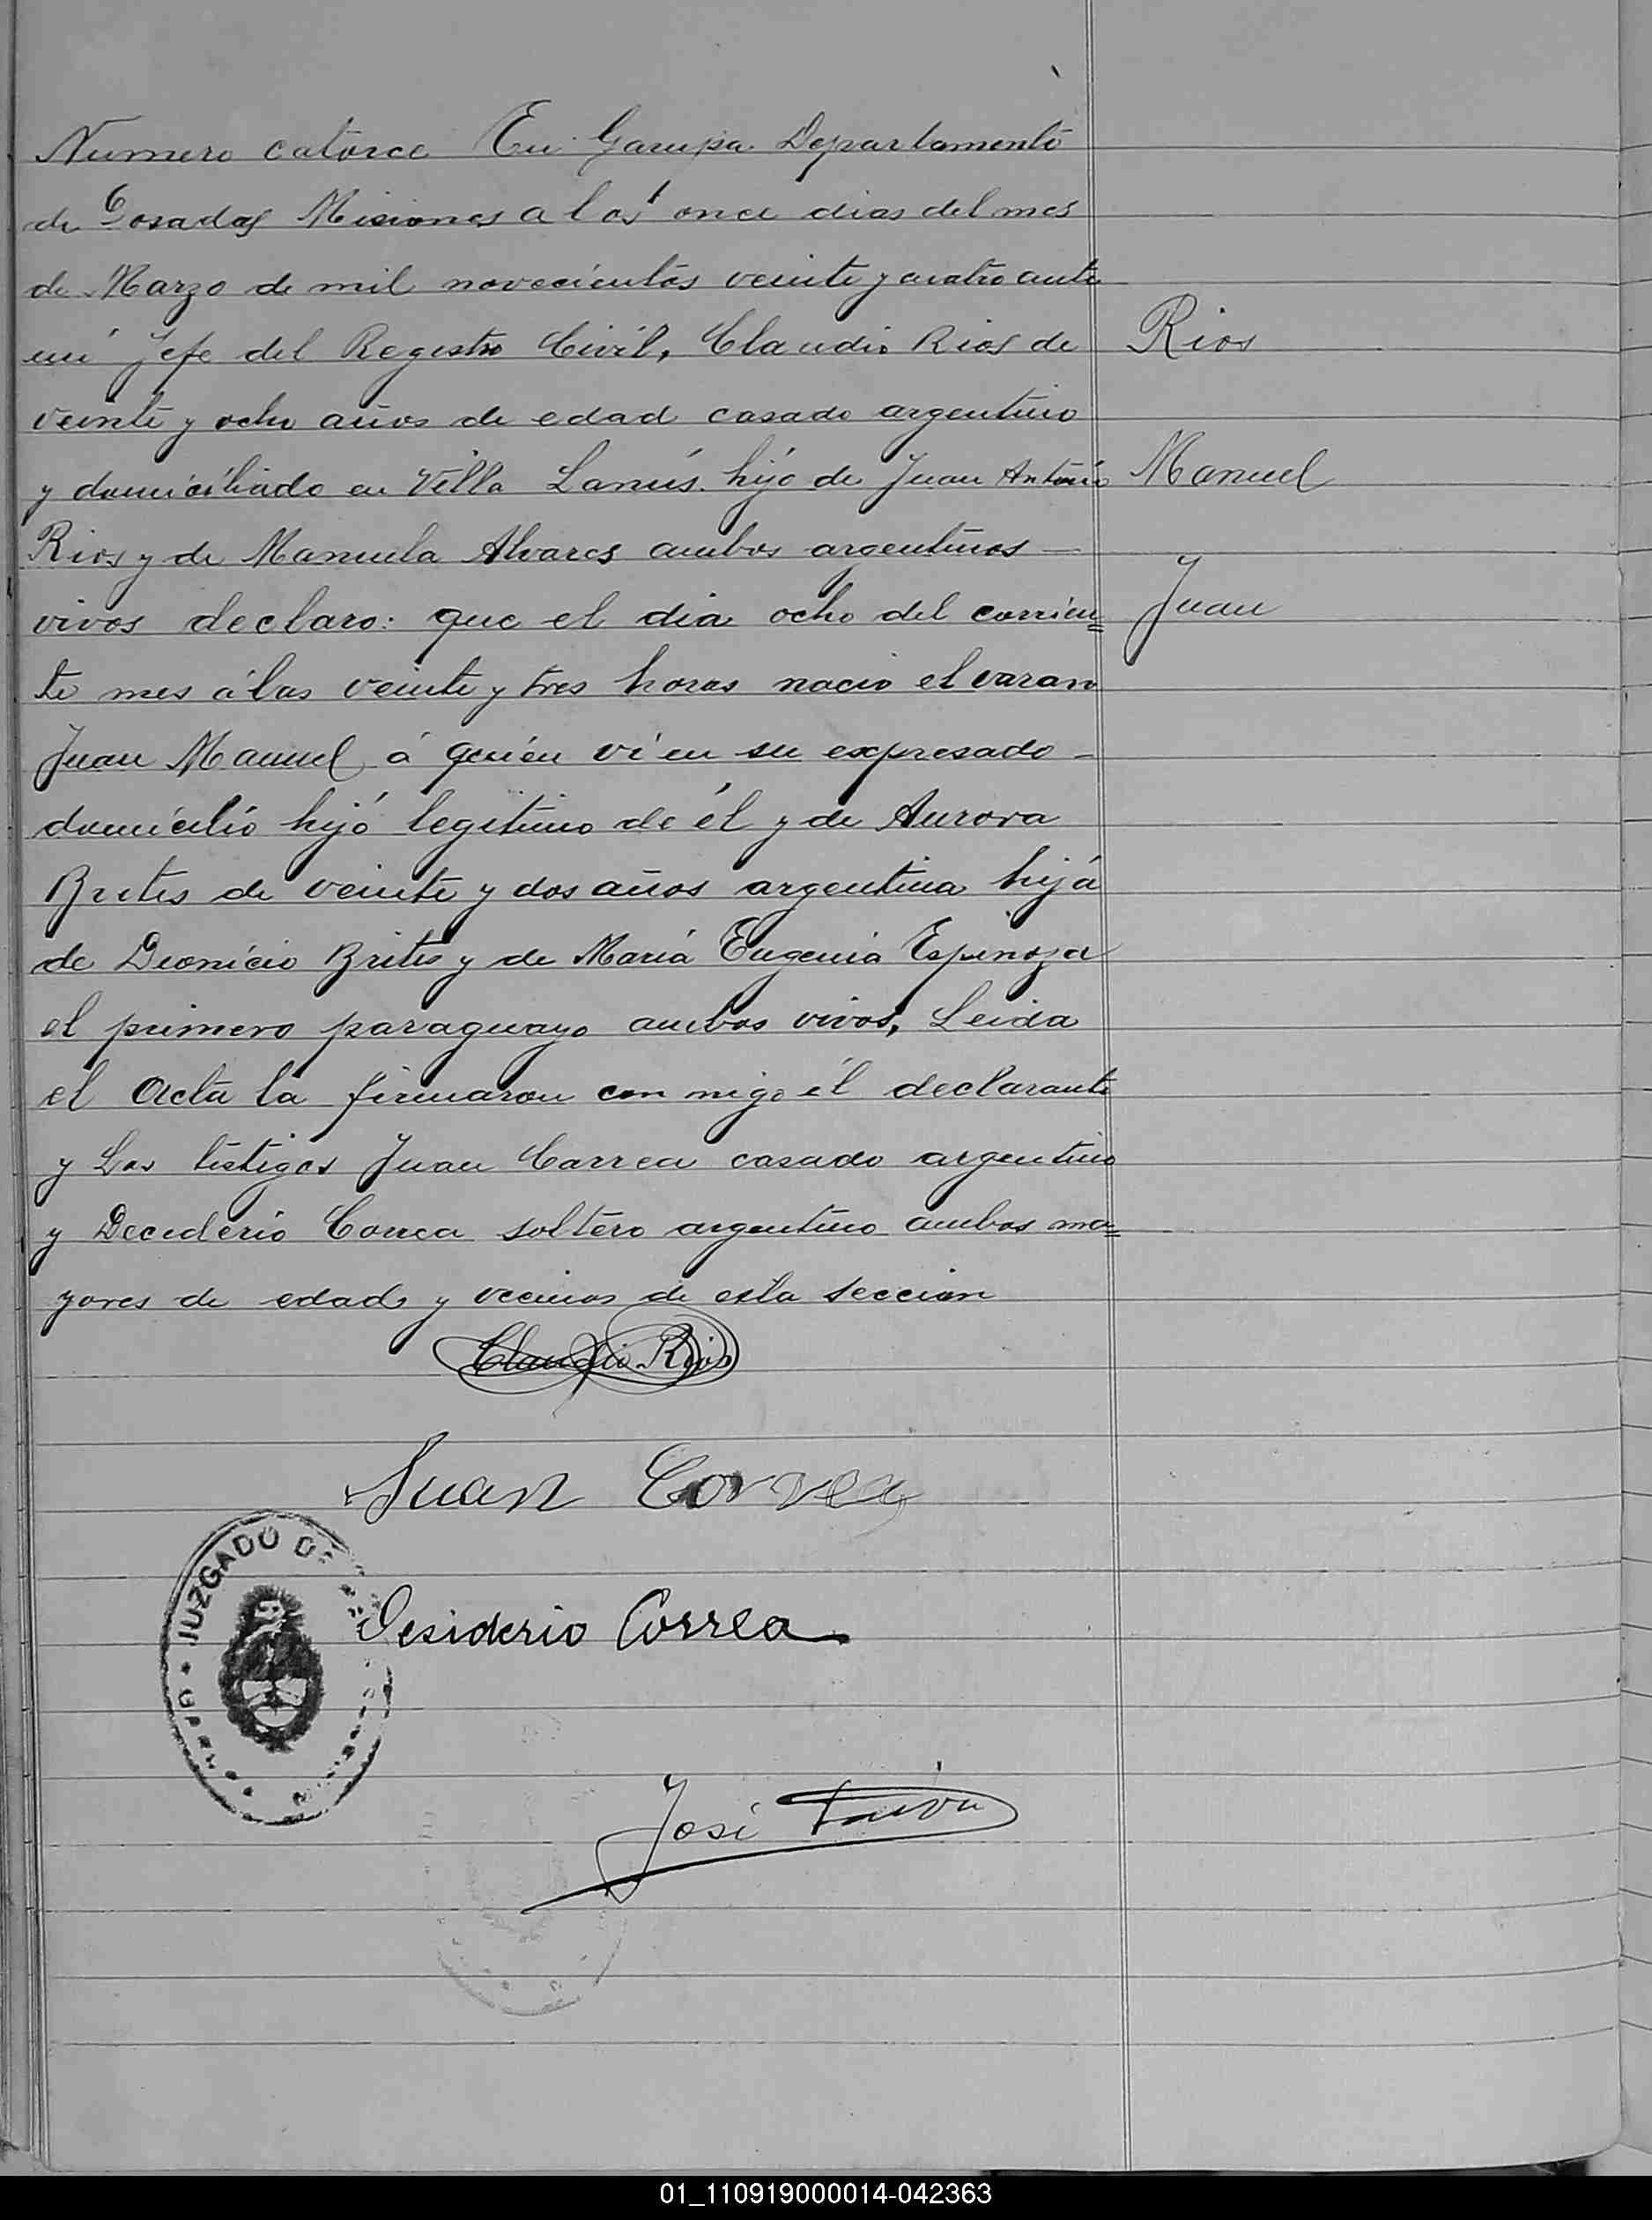 Numero catorce En Garupa Departamento
de Posadas Misiones a los once dias del mes
de Marzo de mil novecientos veinte y cuatro ante
mi Jefe del Registro Civil, Claudio Rios de
Rios
veinte y ocho años de edad casado argentino
y domiciliado en Villa Lanús hijo de Juan Antonio
Manuel
Rios y de Manuela Alvares ambos argentinos —
vivos declaro: que el dia ocho del corrien=
Juan
te mes á las veinte y tres horas nacio el varan
Juan Manuel á quién vi en su expresado —
domicilio hijó legitimo de él y de Aurora
Brites de veinte y dos años argentina hijá
de Dionicio Brites y de Maria Eugenia Espinoza
el primero paraguayo ambos vivos, Leida
el Acta la firmaron con migo él declarante
y Los testigos Juan Correa casado argentino
y Deciderio Correa soltero argentino ambos ma=
yores de edad y vecinos de esta seccion
Claudio Rios
Juan Correa
JUZGADO D
Desiderio Correa
José
01_110919000014-042363